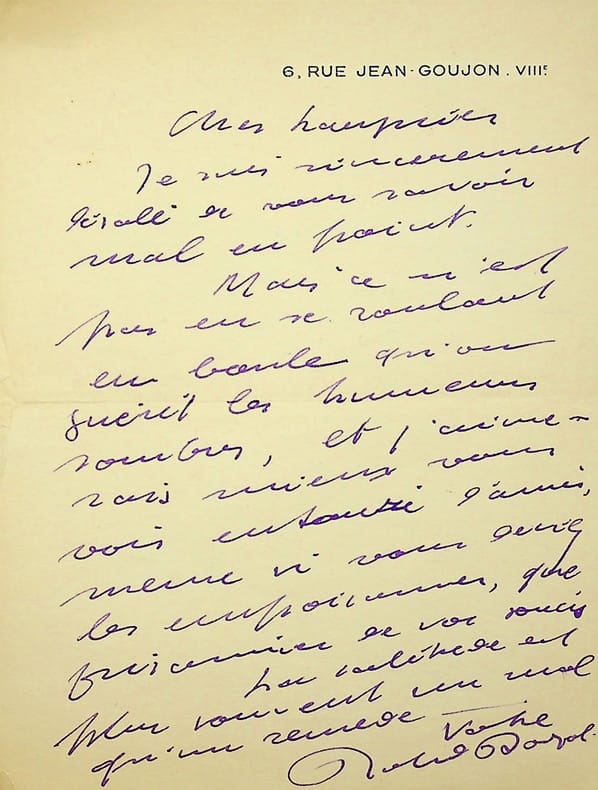 6, RUE JEAN-GOUJON. VIIIE
Cher
Je suis sincerement
désolé de vous savoir
mal en point.
Mais ce n'est
pas en se roulant
en boule qu'on
guérit les humeurs
sombres, et j'aime-
rais mieux vous
voir entouré d'amis,
meme si vous deviez
les empoisonner, que
prisonnier de vos soucis
La solitude est
plus souvent un mal
qu'un remede
Votre